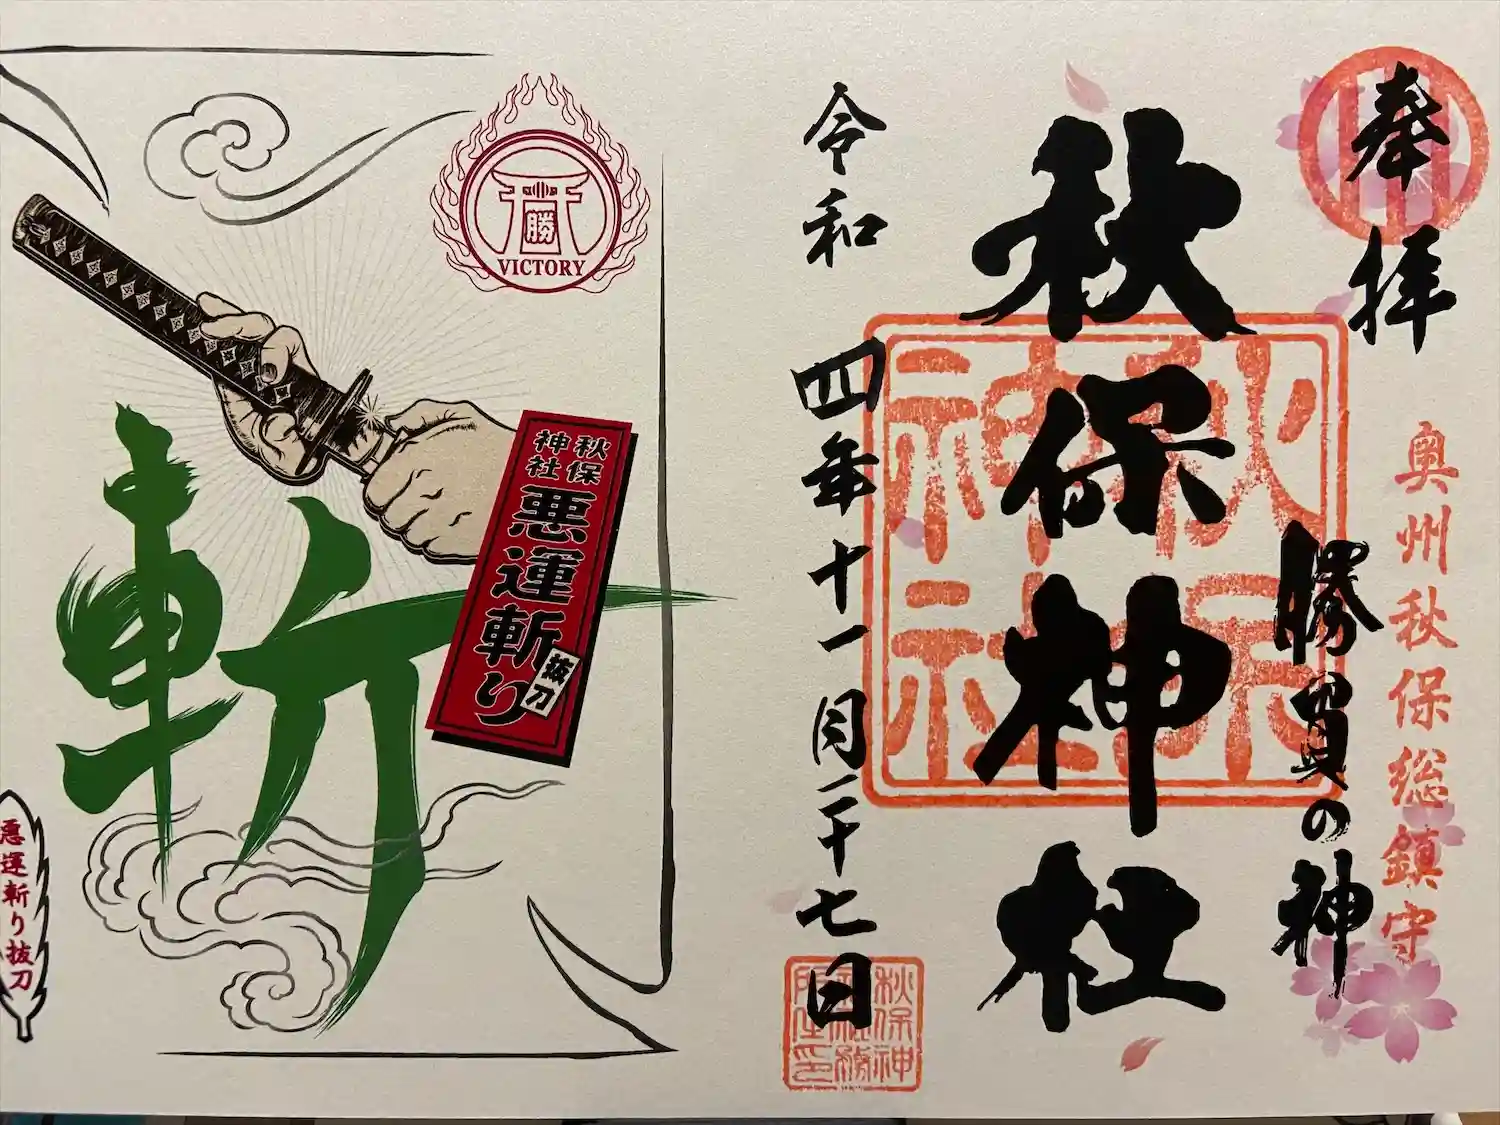 奉拝
奥州秋保総鎮守
勝負の神
秋保神社
秋保神社
令和四年十一月二十七日
勝
VICTORY
秋保神社
悪運斬り
抜刀
斬
悪運斬り抜刀